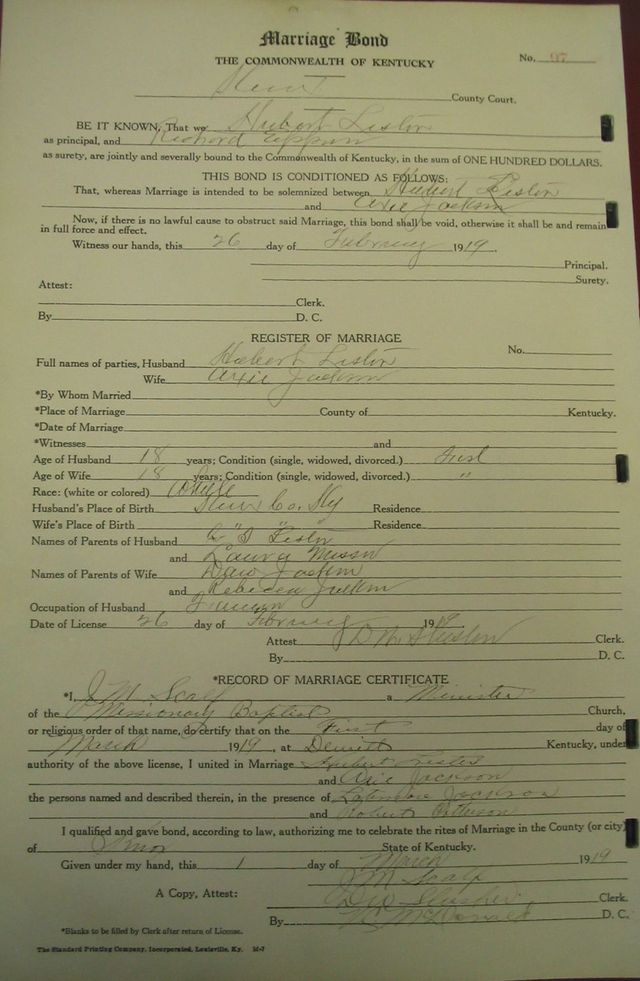 Marriage Bond
THE COMMONWEALTH OF KENTUCKY
No. 97
County Court.
BE IT KNOWN, That we Hubert
as principal, and Richard
as surety, are jointly and severally bound to the Commonwealth of Kentucky, in the sum of ONE HUNDRED DOLLARS.
THIS BOND IS CONDITIONED AS FOLLOWS:
That, whereas Marriage is intended to be solemnized between Hubert
and Arxie Jackson
Now, if there is no lawful cause to obstruct said Marriage, this bond shall be void, otherwise it shall be and remain
in full force and effect.
Witness our hands, this 26 day of February 1919.
Principal.
Surety.
Attest:
Clerk.
By D. C.
REGISTER OF MARRIAGE
No.
Full names of parties, Husband Hubert
Wife Arxie Jackson
*By Whom Married
*Place of Marriage County of Kentucky.
*Date of Marriage
*Witnesses and
Age of Husband 18 years; Condition (single, widowed, divorced.) first
Age of Wife 18 years; Condition (single, widowed, divorced.) "
Race: (white or colored) White
Husband's Place of Birth Co. Ky Residence
Wife's Place of Birth " " " Residence
Names of Parents of Husband
and Laura
Names of Parents of Wife Jackson
and Rebecca Jackson
Occupation of Husband Farmer
Date of License 26 day of February 1919
Attest Clerk.
By D. C.
*RECORD OF MARRIAGE CERTIFICATE
*I, J M Scalf a Minister
of the Missionary Baptist Church,
or religious order of that name, do certify that on the First day of
March 1919, at Kentucky, under
authority of the above license, I united in Marriage Hubert
and Arxie Jackson
the persons named and described therein, in the presence of Jackson
and Robert
I qualified and gave bond, according to law, authorizing me to celebrate the rites of Marriage in the County (or city)
of Knox State of Kentucky.
Given under my hand, this 1 day of March 1919
J M Scalf
A Copy, Attest: Clerk.
By McDonald D. C.
*Blanks to be filled by Clerk after return of License.
The Standard Printing Company, Incorporated, Louisville, Ky. M-7